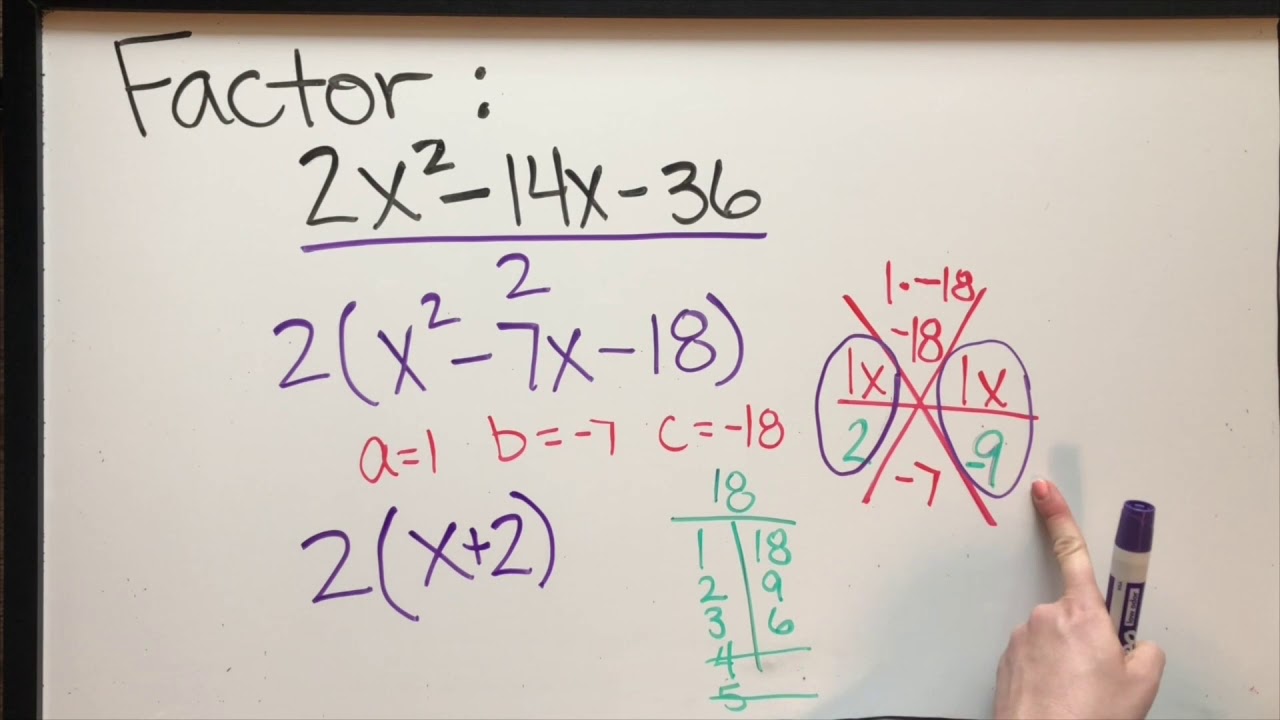 Factor:
2x² - 14x - 36
2
2(x² - 7x - 18)
a=1 b=-7 c=-18
2(x+2)
1·-18
-18
1x 1x
2 -9
-7
18
1 18
2 9
3 6
4
5